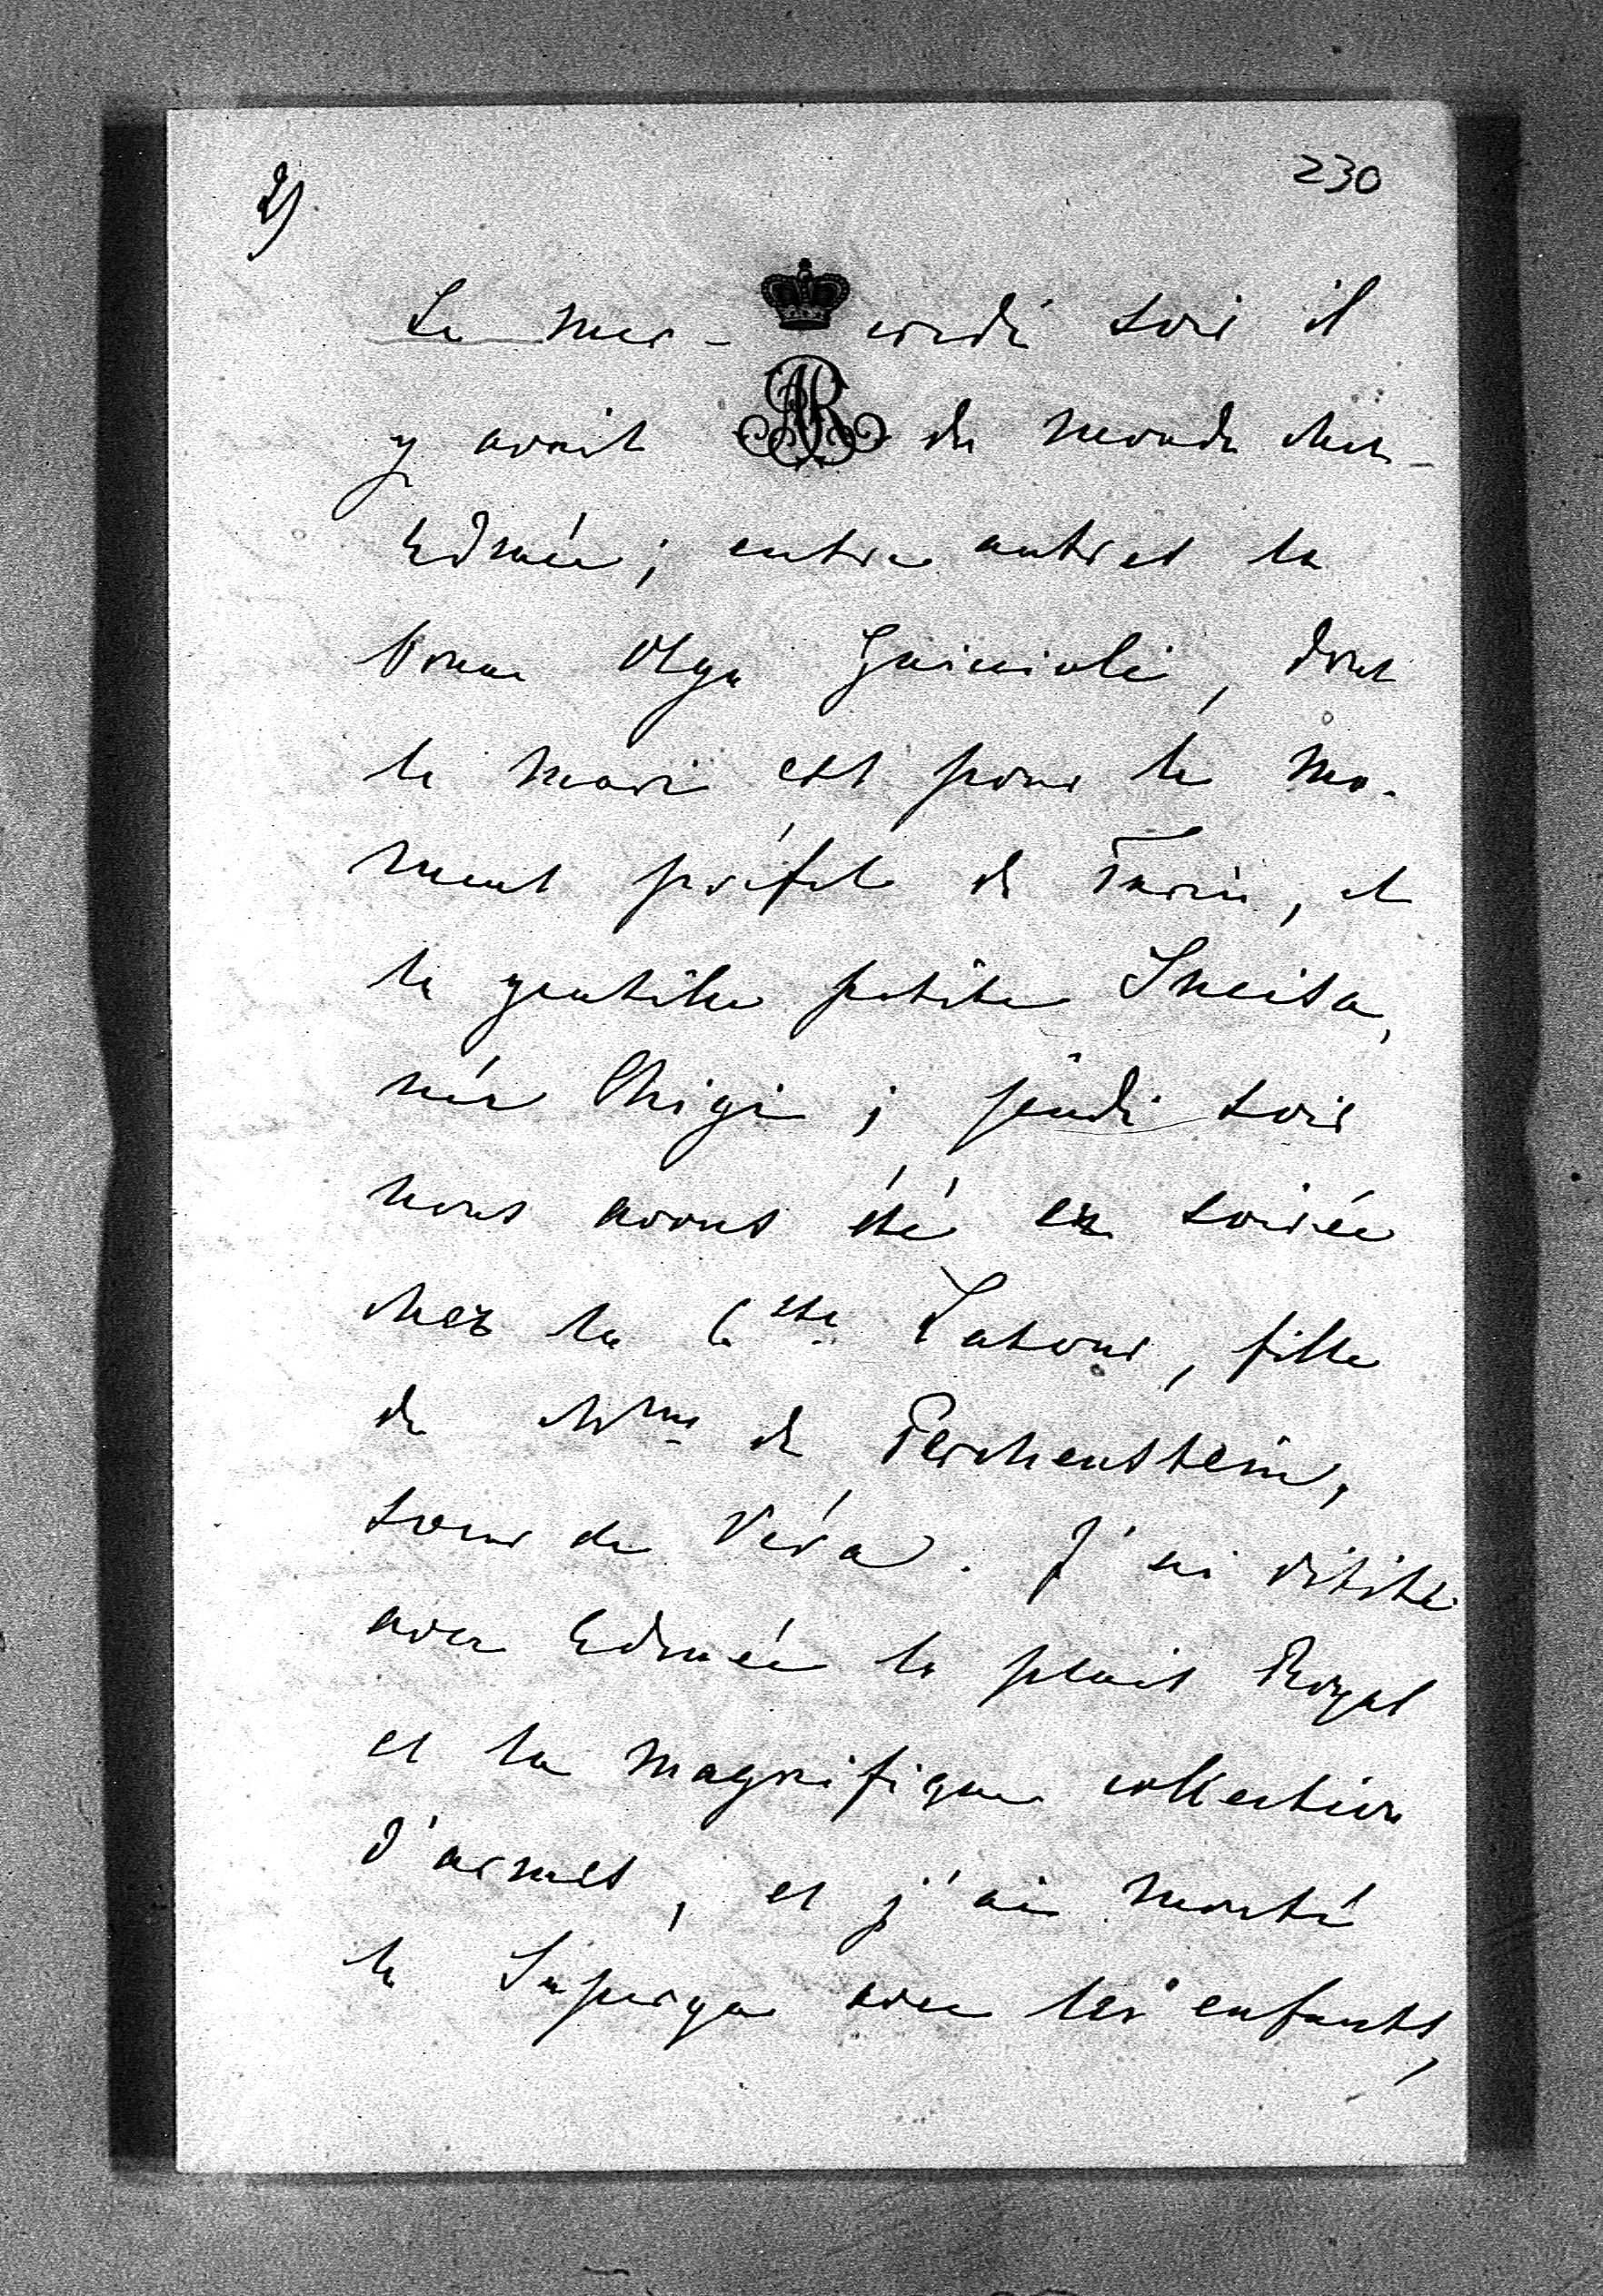 230
2)
Le mer- credi soir il
y avait du monde chez
Edmée ; entre autres la
bonne Olga Guiccioli, dont
le mari est pour le mo-
ment préfet de Turin, et
la gentille petite Incisa,
née Chigi ; jeudi soir
nous avons été en soirée
chez la Csse Latour, fille
de Mme de Perchenstein,
soeur de Véra. J'ai visité
avec Edmée le palais Royal
et la magnifique collection
d'armes, et j'ai monté
la Superga avec les enfants,